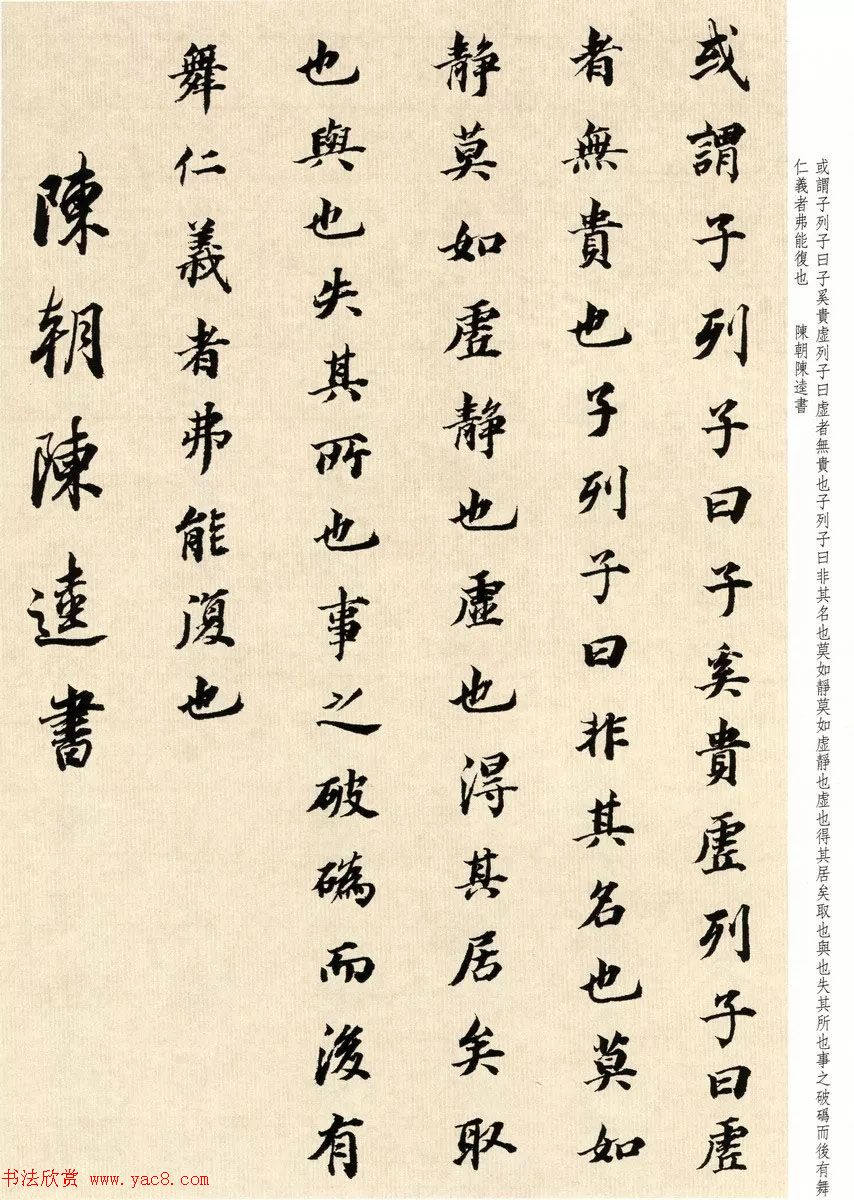 或謂子列子曰子奚貴虛列子曰虛
者無貴也子列子曰非其名也莫如
靜莫如虛靜也虛也得其居矣取
也與也失其所也事之破䃣而後有
舞仁義者弗能復也
陳朝陳逵書
或謂子列子曰子奚貴虛列子曰虛者無貴也子列子曰非其名也莫如靜莫如虛靜也虛也得其居矣取也與也失其所也事之破碼而後有舞
仁義者弗能復也 陳朝陳逵書
书法欣赏 www.yac8.com